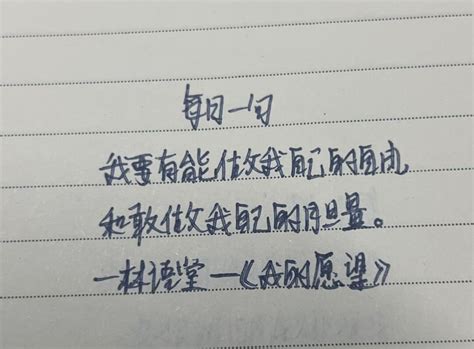 每日一句
我要有能做我自己的自由
和敢做我自己的胆量。
一林语堂一《我的愿望》